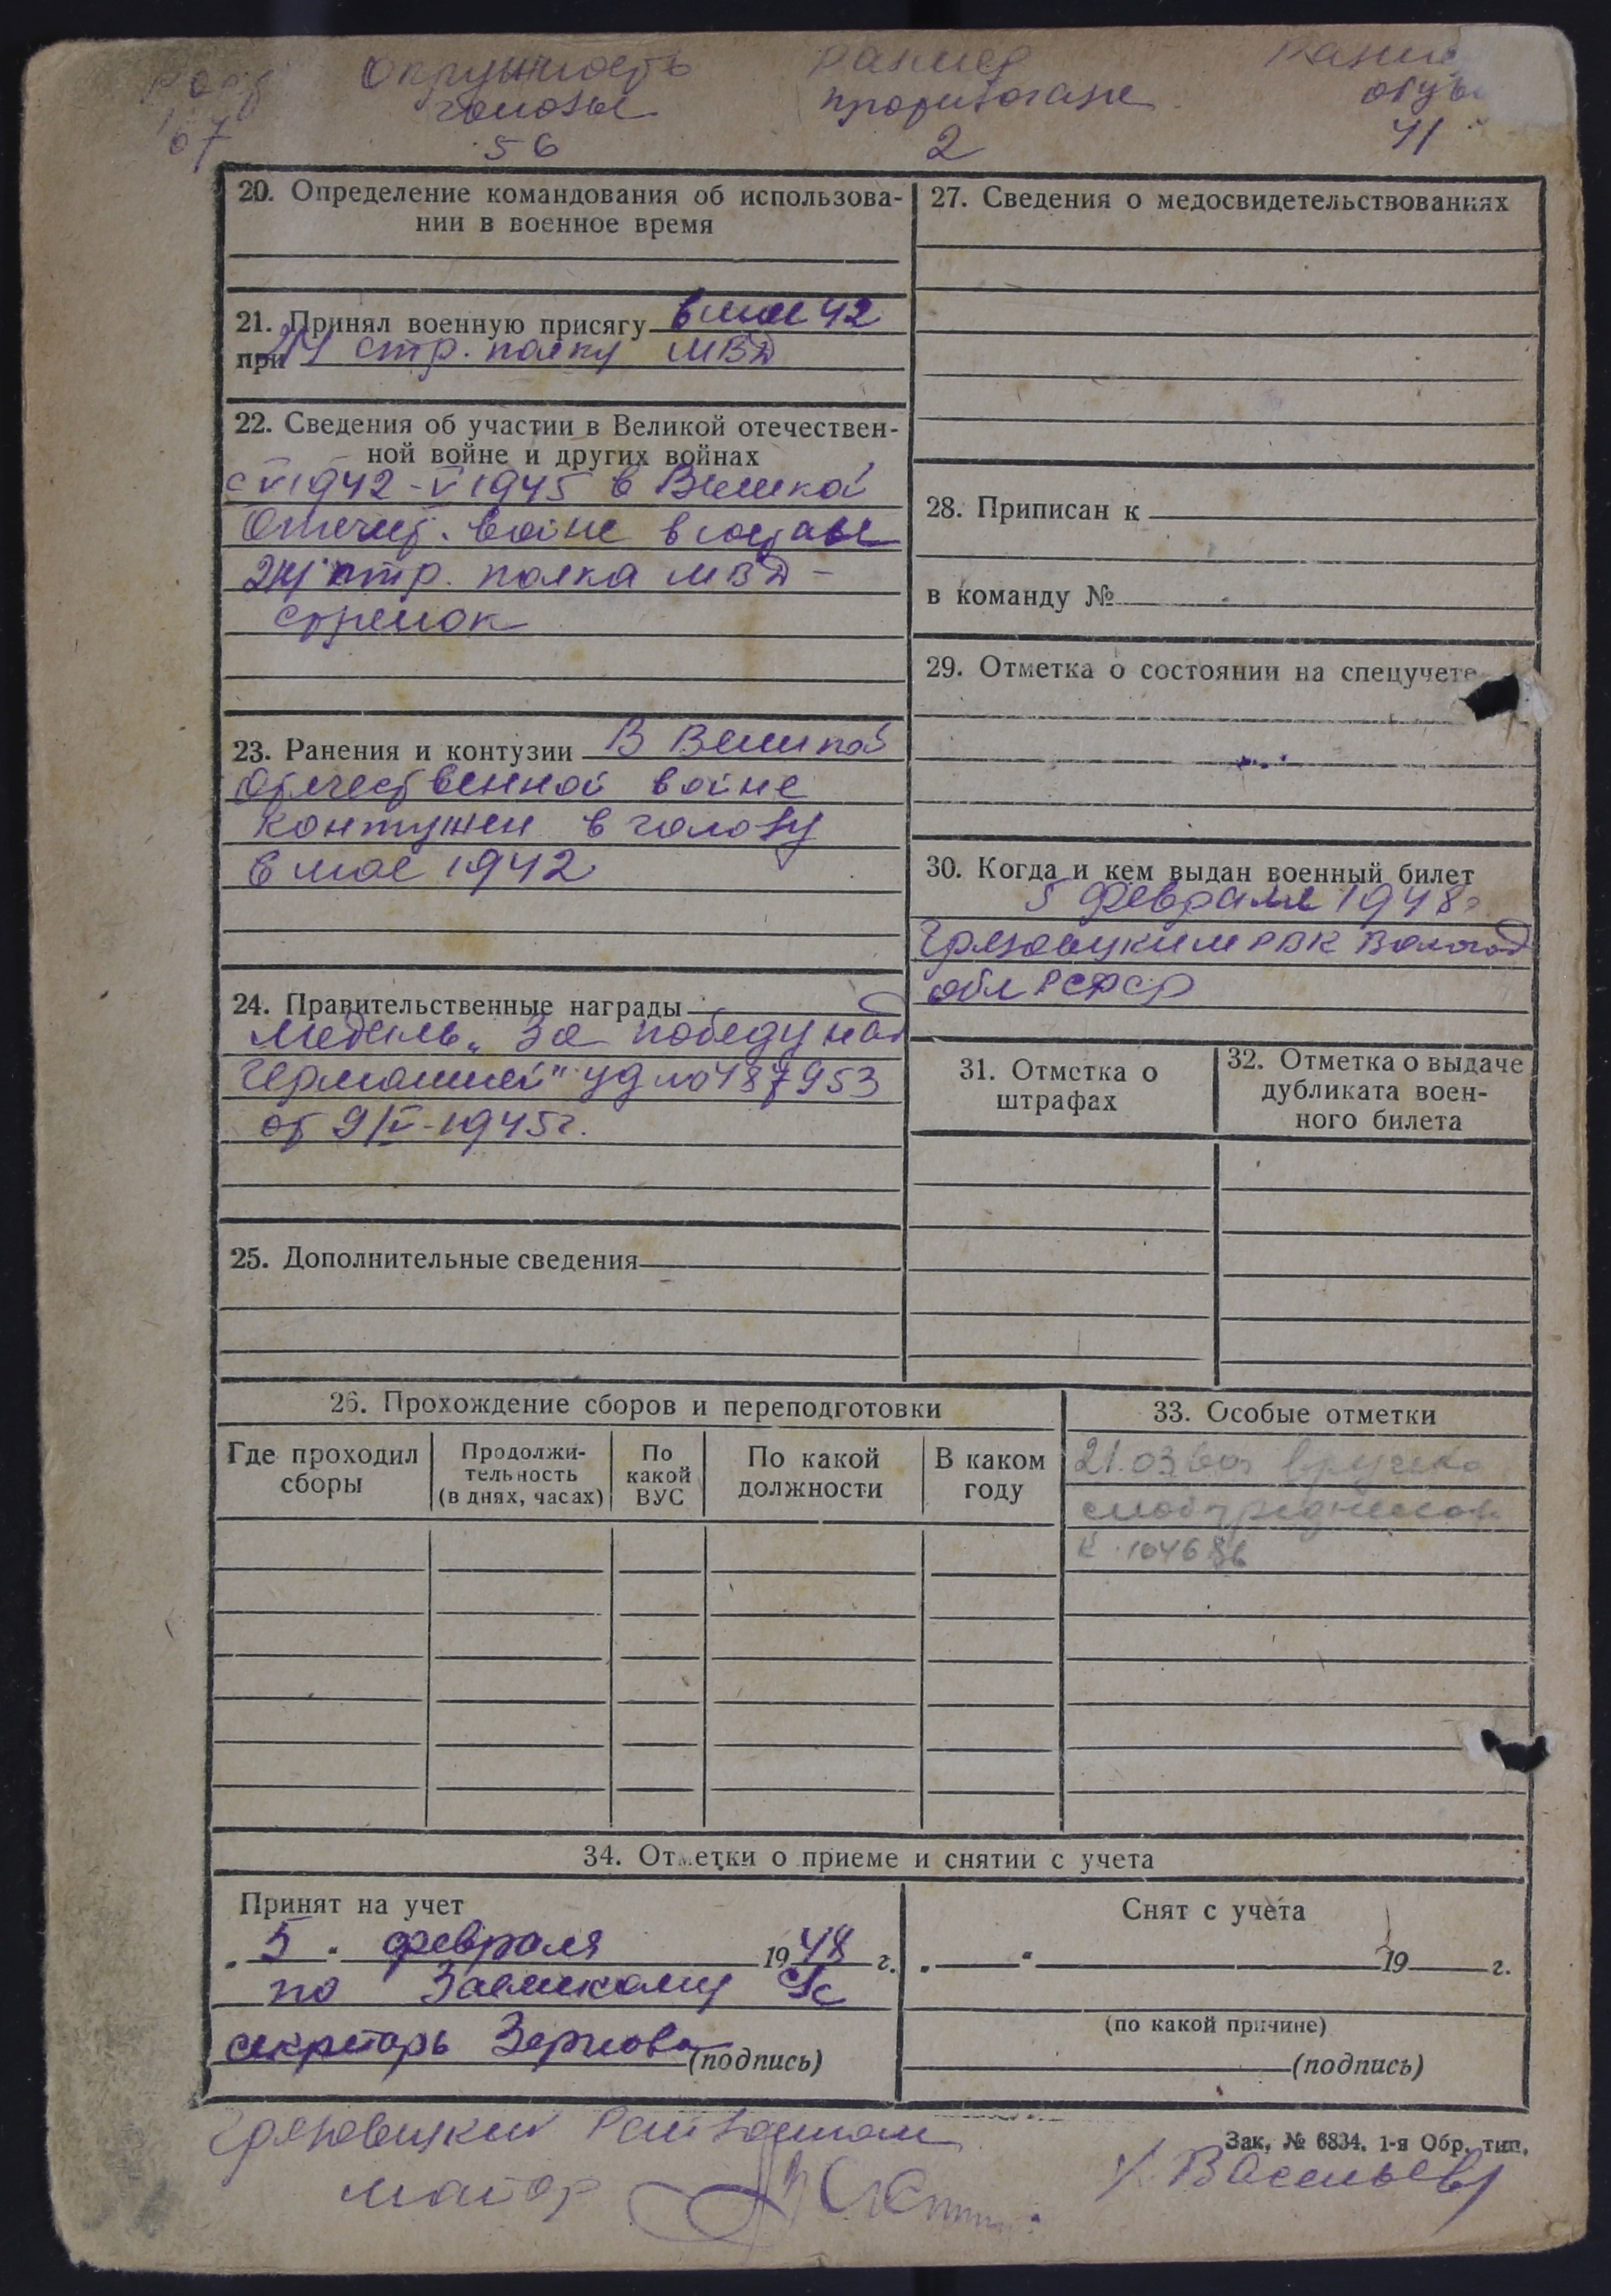 Рост Окружность Размер Размер
головы противогаза обуви
167 56 2 41
20. Определение командования об использова-
нии в военное время
21. Принял военную присягу в мае 42
при стр. полку МВД
22. Сведения об участии в Великой отечествен-
ной войне и других войнах
с V 1942 - V 1945 в Великой
Отечест. войне в составе
стр. полка МВД -
стрелок
23. Ранения и контузии В Великой
Отечественной войне
контужен в голову
в мае 1942
24. Правительственные награды
медаль „За победу над
Германией" уд № 487953
от 9/V-1945г.
25. Дополнительные сведения
27. Сведения о медосвидетельствованиях
28. Приписан к
в команду №
29. Отметка о состоянии на спецучете
30. Когда и кем выдан военный билет
5 февраля 1948г
Грязовецким РВК Вологод
обл РСФСР
31. Отметка о
штрафах
32. Отметка о выдаче
дубликата воен-
ного билета
26. Прохождение сборов и переподготовки
Где проходил
сборы
Продолжи-
тельность
(в днях, часах)
По
какой
ВУС
По какой
должности
В каком
году
33. Особые отметки
21.03.60г вручено
мобпредписан
34. Отметки о приеме и снятии с учета
Принят на учет
„5" февраля 1948 г.
по Заемскому с/с
секретарь Зернова (подпись)
Снят с учета
„ " 19 г.
(по какой причине)
(подпись)
Зак. № 6834. 1-я Обр. тип.
Грязовецкий Райвоенком
майор
Васильев